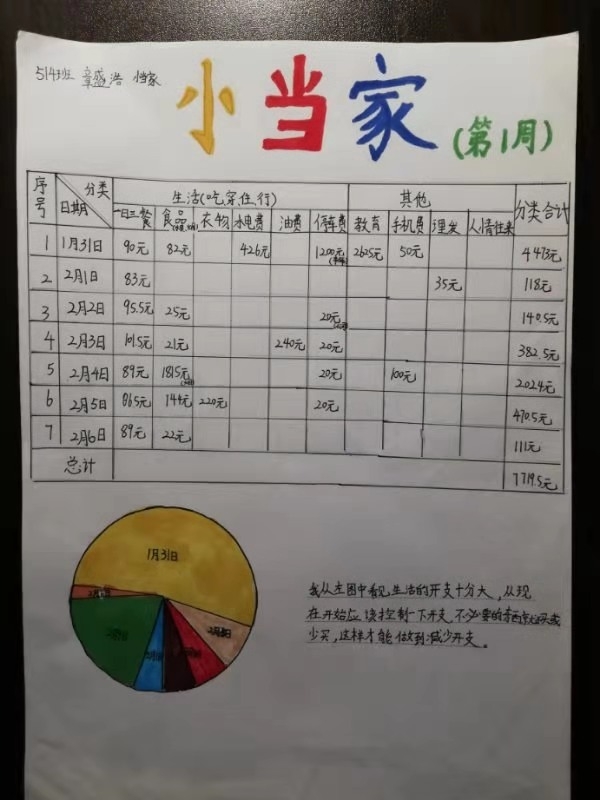 514班 章盛浩 小当家
小当家
(第1周)
序号 分类 日期 生活(吃穿住行) 其他 分类合计
一日三餐 食品 衣物 水电费 油费 停车费 教育 手机费 理发 人情往来
1 1月31日 90元 82元 426元 1200元 2625元 50元 4473元
2 2月1日 83元 35元 118元
3 2月2日 95.5元 25元 20元 140.5元
4 2月3日 101.5元 21元 240元 20元 382.5元
5 2月4日 89元 1815元 20元 100元 2024元
6 2月5日 86.5元 144元 220元 20元 470.5元
7 2月6日 89元 22元 111元
总计 7719.5元
1月31日
我从左图中看见生活的开支十分大,从现
在开始应该控制一下开支,不必要的东西
少买,这样才能做到减少开支。